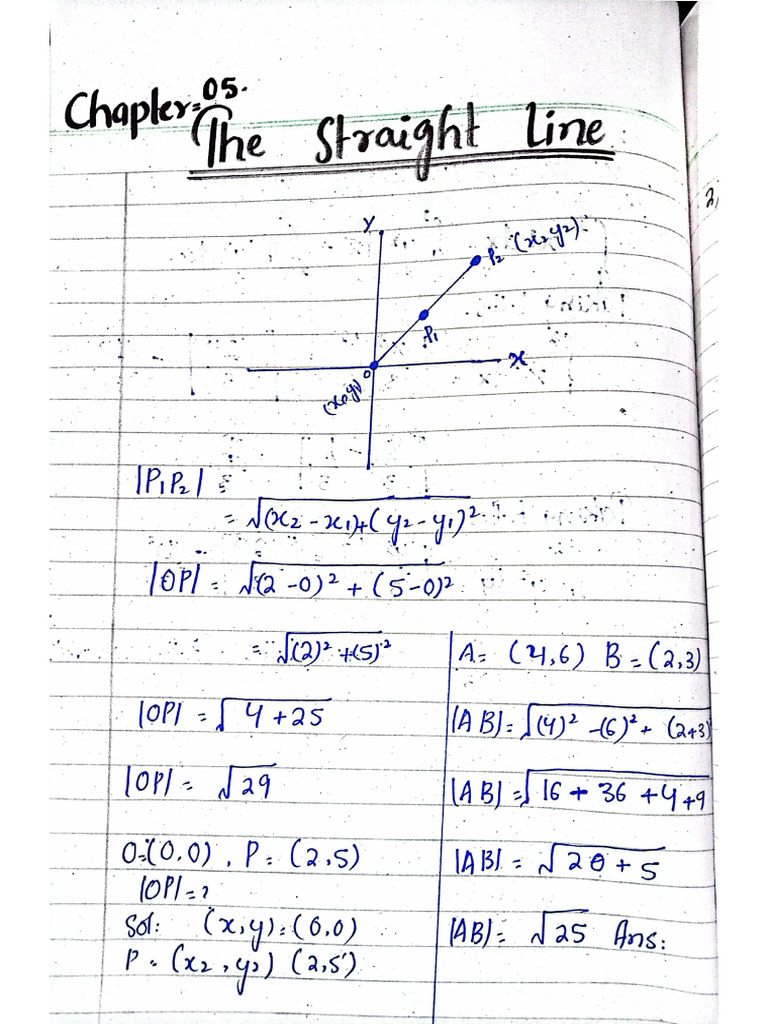 Chapter=05.
The Straight Line
Y
P2 (x2 y2).
P1
x
0
(x1 y1)
|P1P2| =
= √(x2 - x1)+(y2 - y1)²
|OP| = √(2 - 0)² + (5 - 0)²
= √(2)² + (5)²
|OP| = √4 + 25
|OP| = √29
O=(0,0), P = (2,5)
|OP| = ?
Sol: (x,y) = (0,0)
P = (x2, y2) (2,5)
A= (4,6) B = (2,3)
|AB| = √(4)² -(6)² + (2+3)
|AB| = √16 + 36 + 4 + 9
|AB| = √20 + 5
|AB| = √25 Ans:
2,